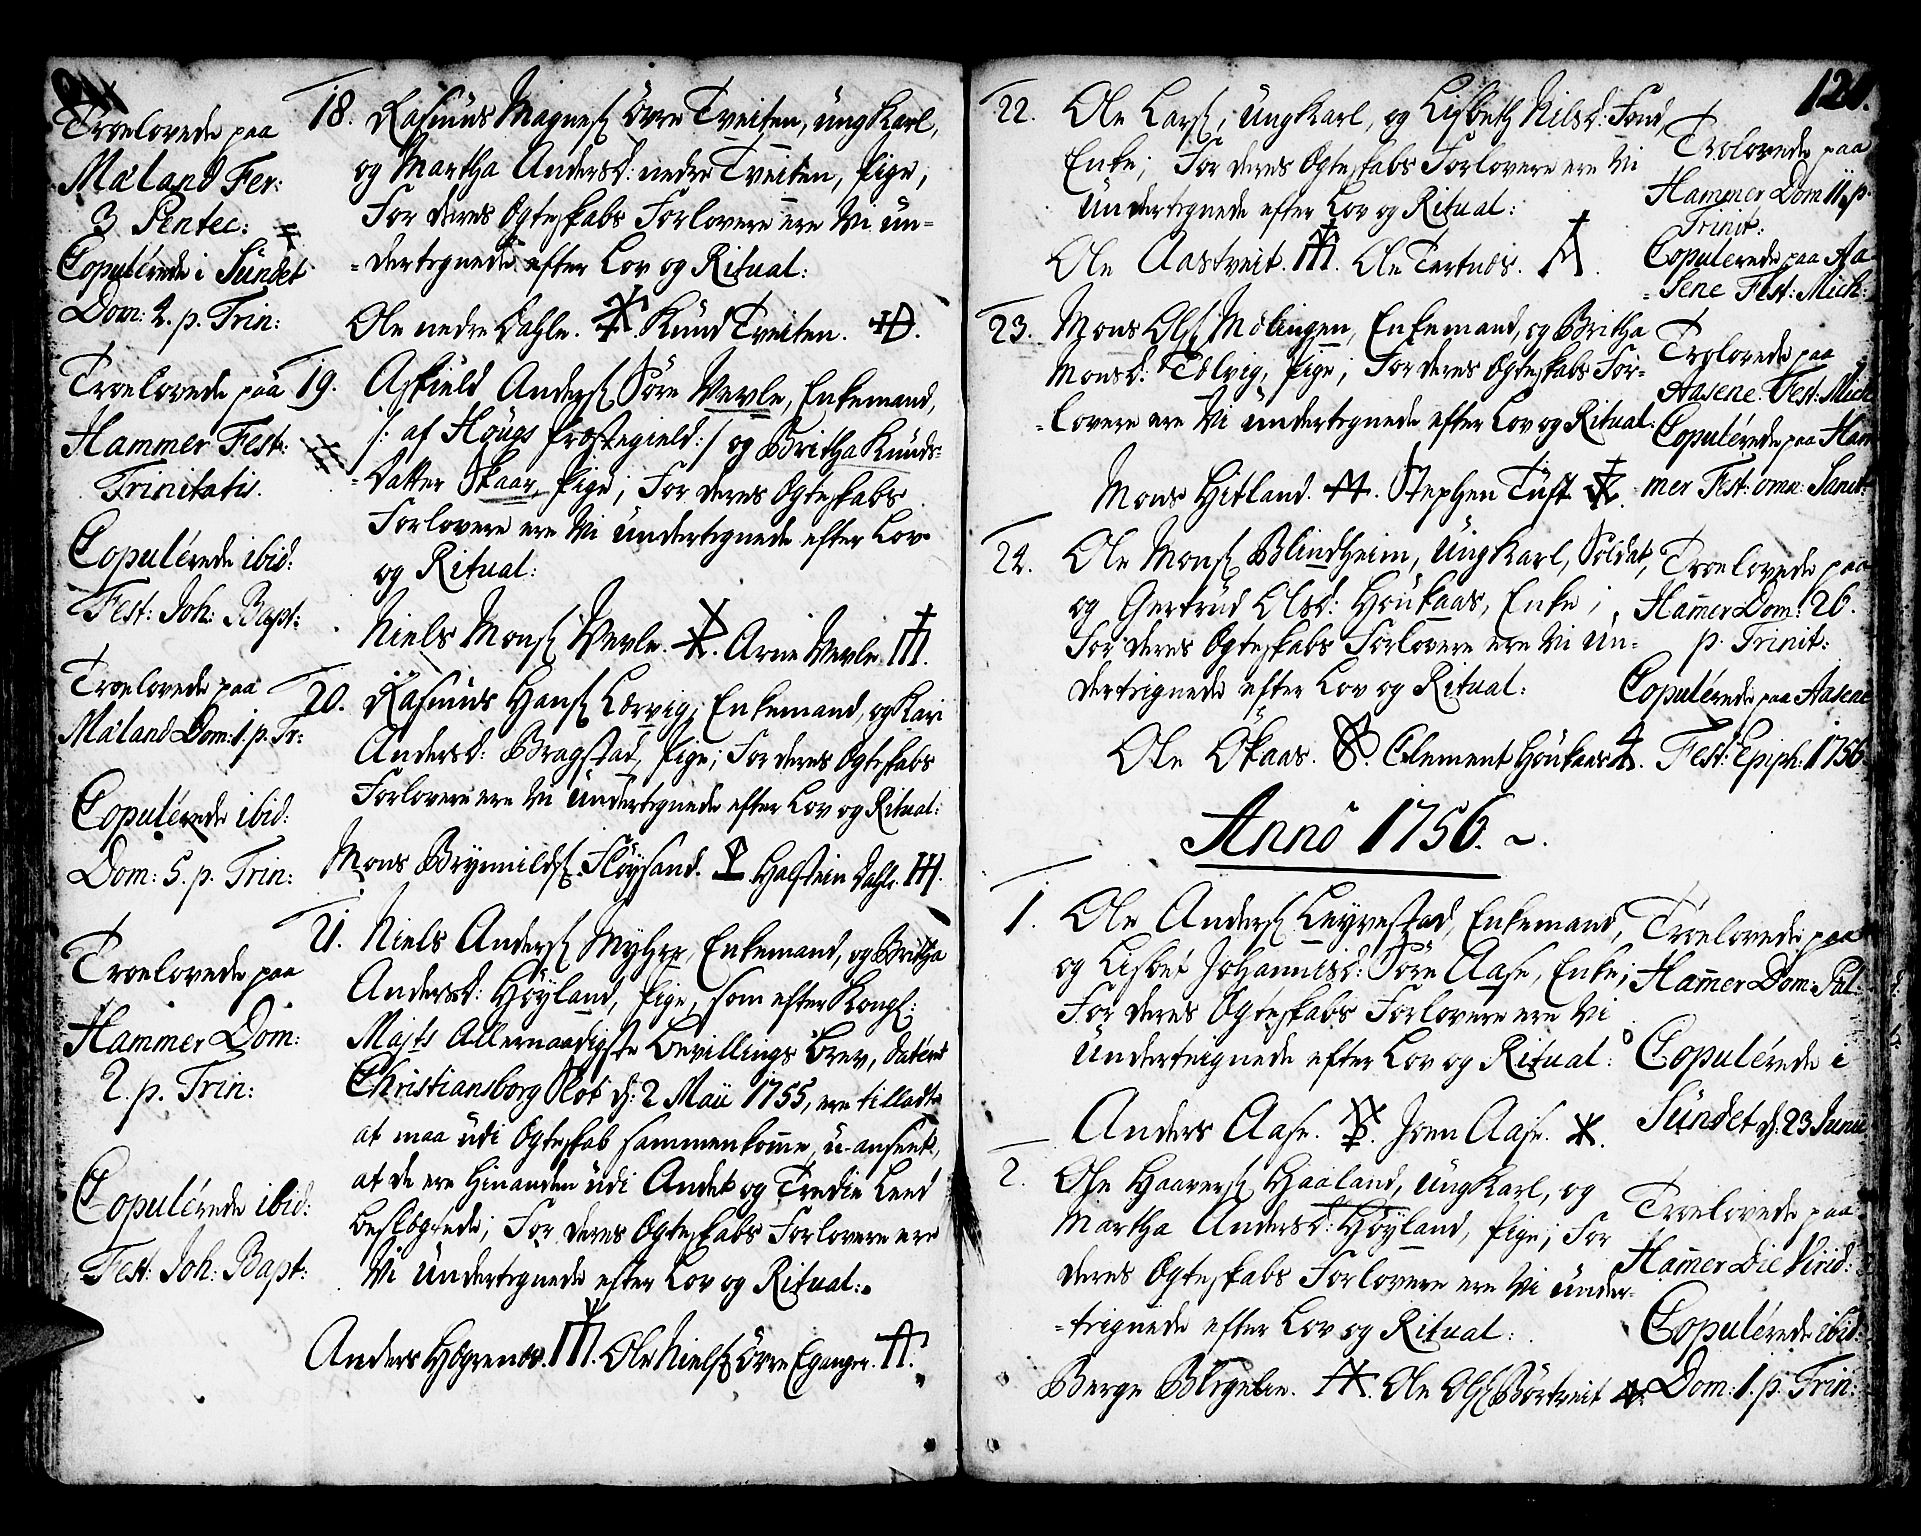 Troelovede paa
Måland Fer:
3 Pentec:
Copulérede i Sündet
Dom: 2. p. Trin:
18. Rasmus Magnes. övre Tveiten, üng Karl,
og Martha Andersd: nedre Tveiten, Pige,
For deres Ogteskabs Forlovere ere Vi ün-
=dertegnede efter Lov og Ritual:
Ole nedre Dahle. Knüd Tveiten.
Troelovede paa
Hammer Fest:
Trinitatis.
Copulérede ibid:
Fest: Joh: Bapt:
19. Askield Anders. Söre Vevle, Enkemand,
/: af Höugs Præstegield:/ og Britha Knüds-
=datter Skaar, Pige; For deres Ogteskabs
Forlovere ere Vi ündertegnede efter Lov
og Ritual:
Niels Mons. Vevle. Arne Vevle
Troelovede paa
Måland Dom: 1. p. Tr:
Copulérede ibid:
Dom: 5. p. Trin:
20. Rasmus Hans. Lervig, Enkemand, og Kari
Andersd: Bragstad, Pige; For deres Ogteskabs
Forlovere ere Vi ündertegnede efter Lov og Ritual:
Mons Brynnilds. Flöysand. Halstein Dahle.
Troelovede paa
Hammer Dom:
2. p. Trin:
Copulérede ibid:
Fest: Joh: Bapt:
21. Niels Anders. Myhre, Enkemand, og Britha
Andersd: Höyland, Pige, som efter Kongl:
Majts Allernaadigste Bevillings Brev, datéret
Christiansborg Slot d: 2 Maii 1755, ere tilladte
at maa üdi Ogteskab sammenkom̄e, ü-anseet,
at de ere hinanden üdi Andet og Tredie Leed
beslögtede; For deres Ogteskabs Forlovere ere
Vi ündertegnede efter Lov og Ritual:
Anders Hoprenes. Ole Niels. övre Eganger.
121.
22. Ole Lars., üngKarl, og Lisbeth Nilsd: Tond,
Enke; For deres Ogteskabs Forlovere ere Vi
ündertegnede efter Lov og Ritual:
Ole Aastveit. Ole Tertnes.
Trolovede paa
Hammer Dom 11 p.
Trinit:
Copulerede paa Aa
=sene Fest: Mich:
23. Mons Ols. Mölingen, Enkemand, og Britha
Monsd: Tölvig, Pige; For deres Ogteskabs For-
=lovere ere Vi ündertegnede efter Lov og Ritual:
Mons Hitland. Stephen Tüft
Trolovede paa
Aasene. Fest: Mich
Copulérede paa Ham
mer Fest: omn: Sanct:
24. Ole Mons. Blindheim, üngKarl, Soldat,
og Gertrüd Olsd: Höukaas, Enke;
For deres Ogteskabs Forlovere ere Vi ün-
dertegnede efter Lov og Ritual:
Ole Ökaas. Clement Höukaas
Troelovede paa
Ham̄er Dom: 26.
p. Trinit:
Copulérede paa Aasene
Fest: Epiph: 1756
Anno 1756.
1. Ole Anders. Leyvestad, Enkemand,
og Lisbet Johannisd: Söre Aase, Enke;
For deres Ogteskabs Forlovere ere Vi
ündertegnede efter Lov og Ritual:
Anders Aase. Joen Aase.
Troelovede paa
Ham̄er Dom: Pal:
Copulérede i
Sündet d: 23 Junii
2. Ole Haavers. Haaland, üngKarl, og
Martha Andersd: Höyland, Pige; For
deres Ogteskabs Forlovere ere Vi ünder-
=tegnede efter Lov og Ritual:
Berge Ole Ols. Börtveit
Troelovede paa
Ham̄er Die Virid:
Copulérede ibid:
Dom: 1. p. Trin: